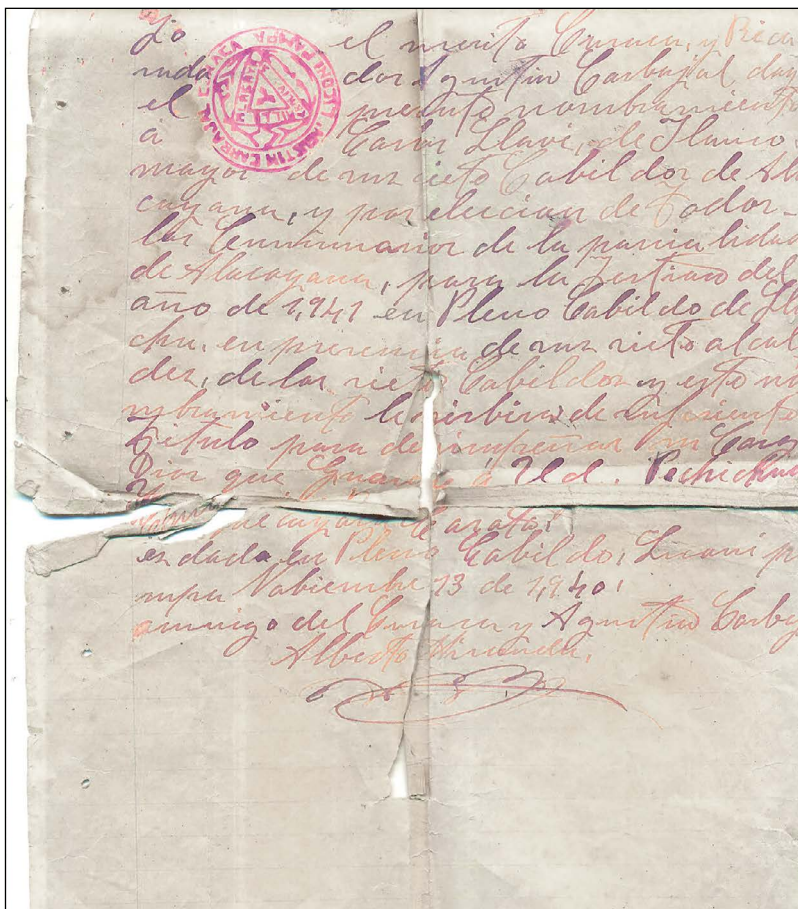 AGUSTIN CARBAJAL CURACA
Yo el merito Curaca, y Reca
uda dor Agustin Carbajal doy
el presente nombramiento
á Llavi, de Jlanco
mayor de mis cieto Cabildos de Ala
cayana, y por eleccion de Todos-
los Cumunarios de la parcialidad
de Alacayana, para la Jestiano del
año de 1,941 en Pleno Cabildo de
chu, en presencia de mis cieto alcal
des, de los cieto Cabildos y esto no
mbramiento le sirbira de
Titulo para desempeñar su Cargo
Dios que Guarde á Ud.
es dada en Pleno Cabildo,
mpa Nobiembre 13 de 1,940,
amigo del Curaca y Agustin Carbaj
Alberto Miranda,